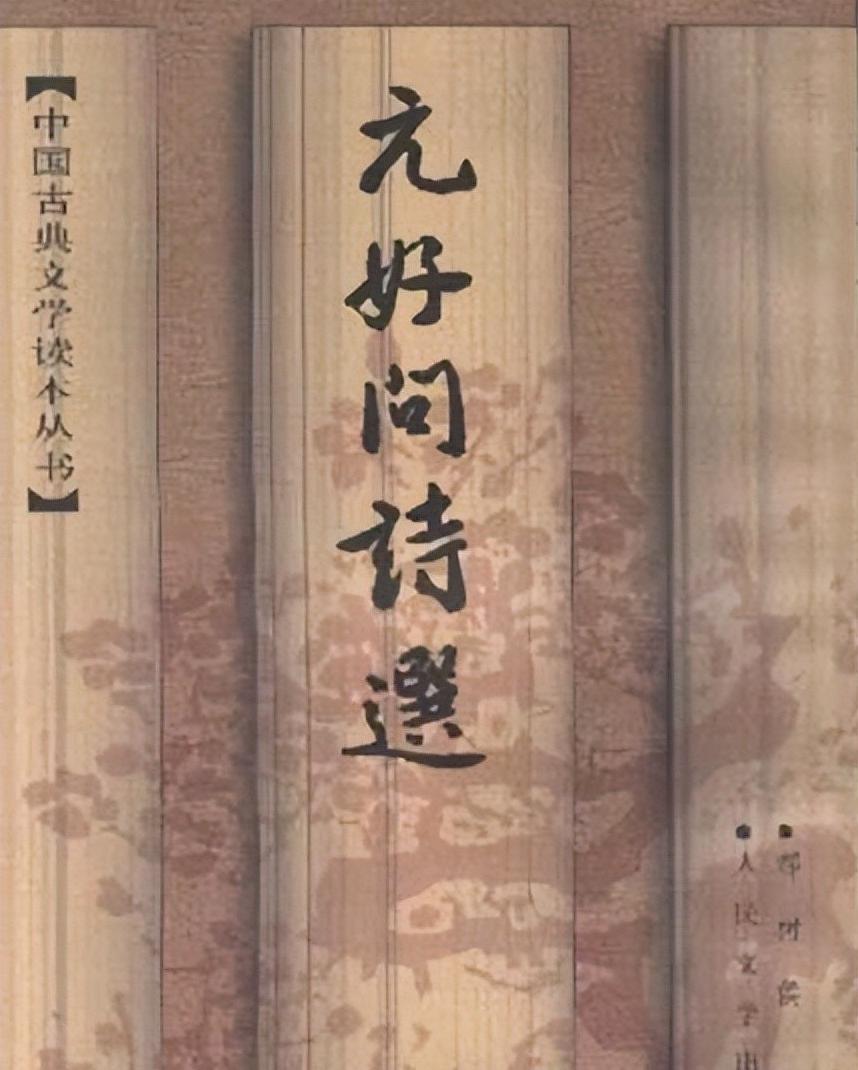 【中国古典文学读本丛书】
元好问詩選
郝树侯
人民文学出